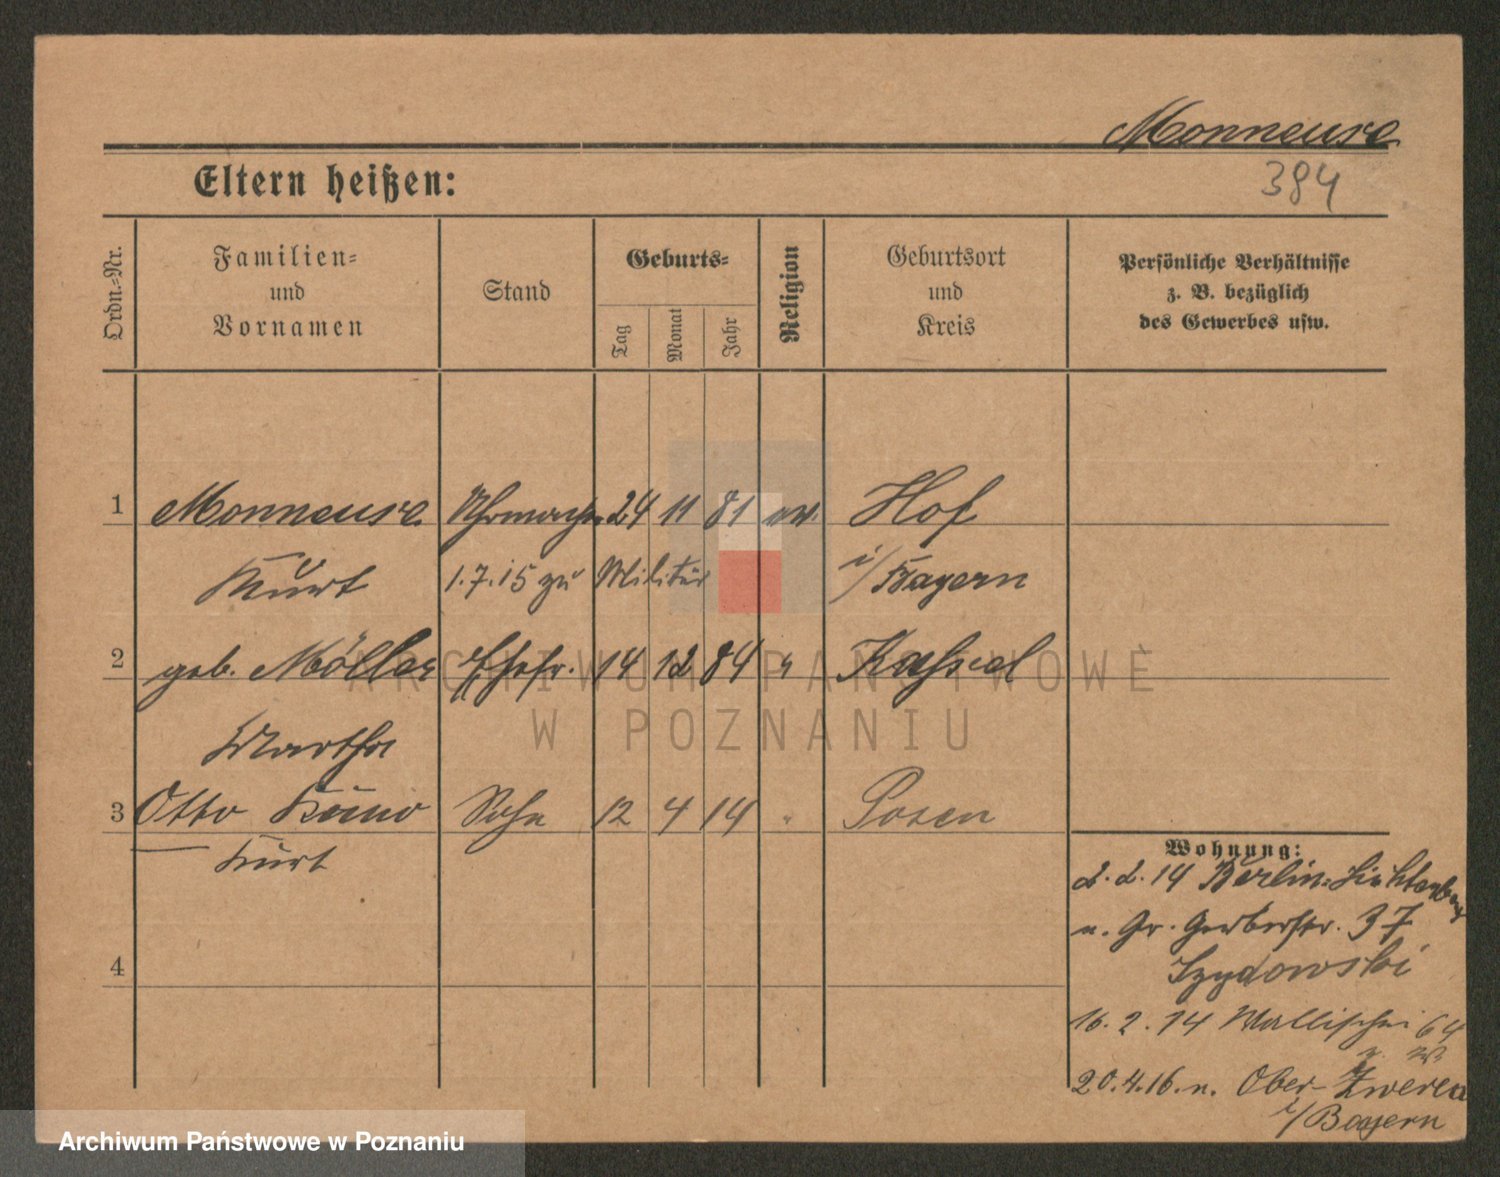 Monneuse
384
Eltern heißen:
Ordn.-Nr.
Familien-
und
Vornamen
Stand
Geburts-
Tag
Monat
Jahr
Religion
Geburtsort
und
Kreis
Persönliche Verhältnisse
z. B. bezüglich
des Gewerbes usw.
1 Monneuse Uhrmacher 24 11 81 ev. Hof
Kurt 1.7.15 zu Militär i/Bayern
2 geb. Möller Ehefr. 14 12 84 " Kassel
Martha
3 Otto Kuno Sohn 12 4 14 " Posen
Kurt
4
Wohnung:
2.2.14 Berlin-Lichtenberg
n. Gr. Gerberstr. 37
Szydowski
16.2.14 Wallischei 64
20.4.16. n. Ober-
i/Bayern
ARCHIWUM PAŃSTWOWE
W POZNANIU
Archiwum Państwowe w Poznaniu